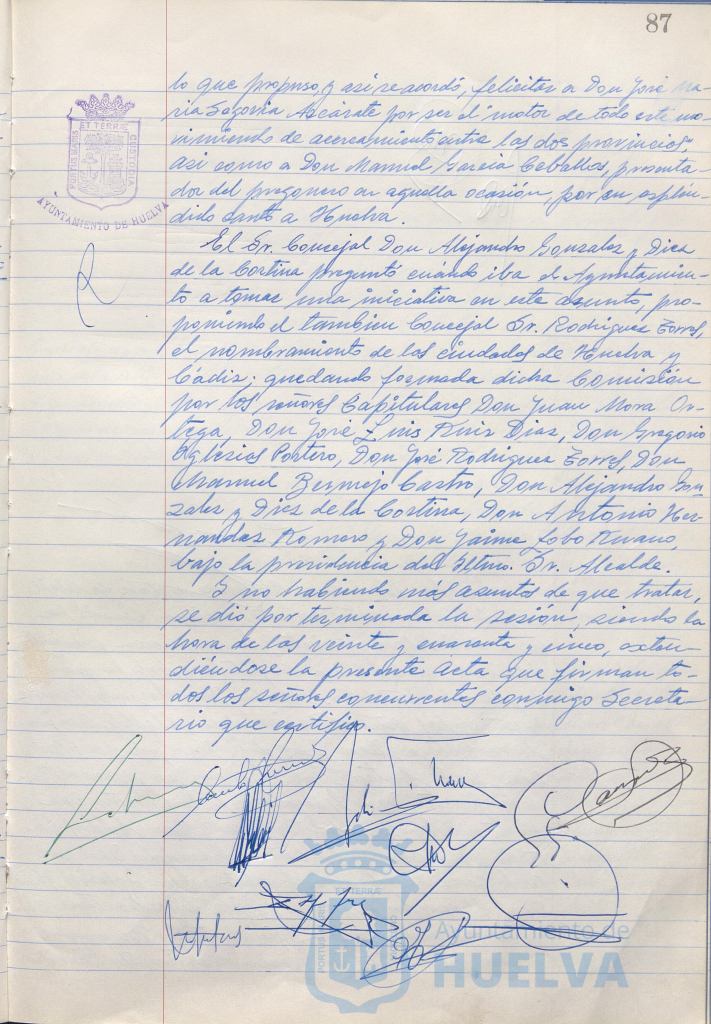 87
lo que propuso, y así se acordó, felicitar a Don José Ma-
ría Segovia Azcárate por ser el "motor de todo este mo-
vimiento de acercamiento entre las dos provincias"
así como a Don Manuel García Ceballos, presenta-
dor del pregonero en aquella ocasión, por su esplén-
dido canto a Huelva.
El Sr. Concejal Don Alejandro Gonzalez y Diez
de la Cortina preguntó cuándo iba el Ayuntamien-
to a tomar una iniciativa en este asunto, pro-
poniendo el tambien Concejal Sr. Rodriguez Torres,
el nombramiento de las ciudades de Huelva y
Cádiz; quedando formada dicha Comisión
por los señores Capitulares Don Juan Mora Or-
tega, Don José Luis Ruiz Diaz, Don Gregorio
Iglesias Portero, Don José Rodriguez Torres, Don
Manuel Bermejo Castro, Don Alejandro Gon-
zalez y Diez de la Cortina, Don Antonio Her-
nandez Romero y Don Jaime Lobo
bajo la presidencia del Iltmo. Sr. Alcalde.
Y no habiendo más asuntos de que tratar,
se dió por terminada la sesión, siendo la
hora de las veinte y cuarenta y cinco, exten-
diéndose la presente acta que firman to-
dos los señores concurrentes conmigo Secreta-
rio que certifico.
PORTUS MARIS
ET TERRÆ
CUSTODIA
AYUNTAMIENTO DE HUELVA
ET TERRÆ
Ayuntamiento de
HUELVA